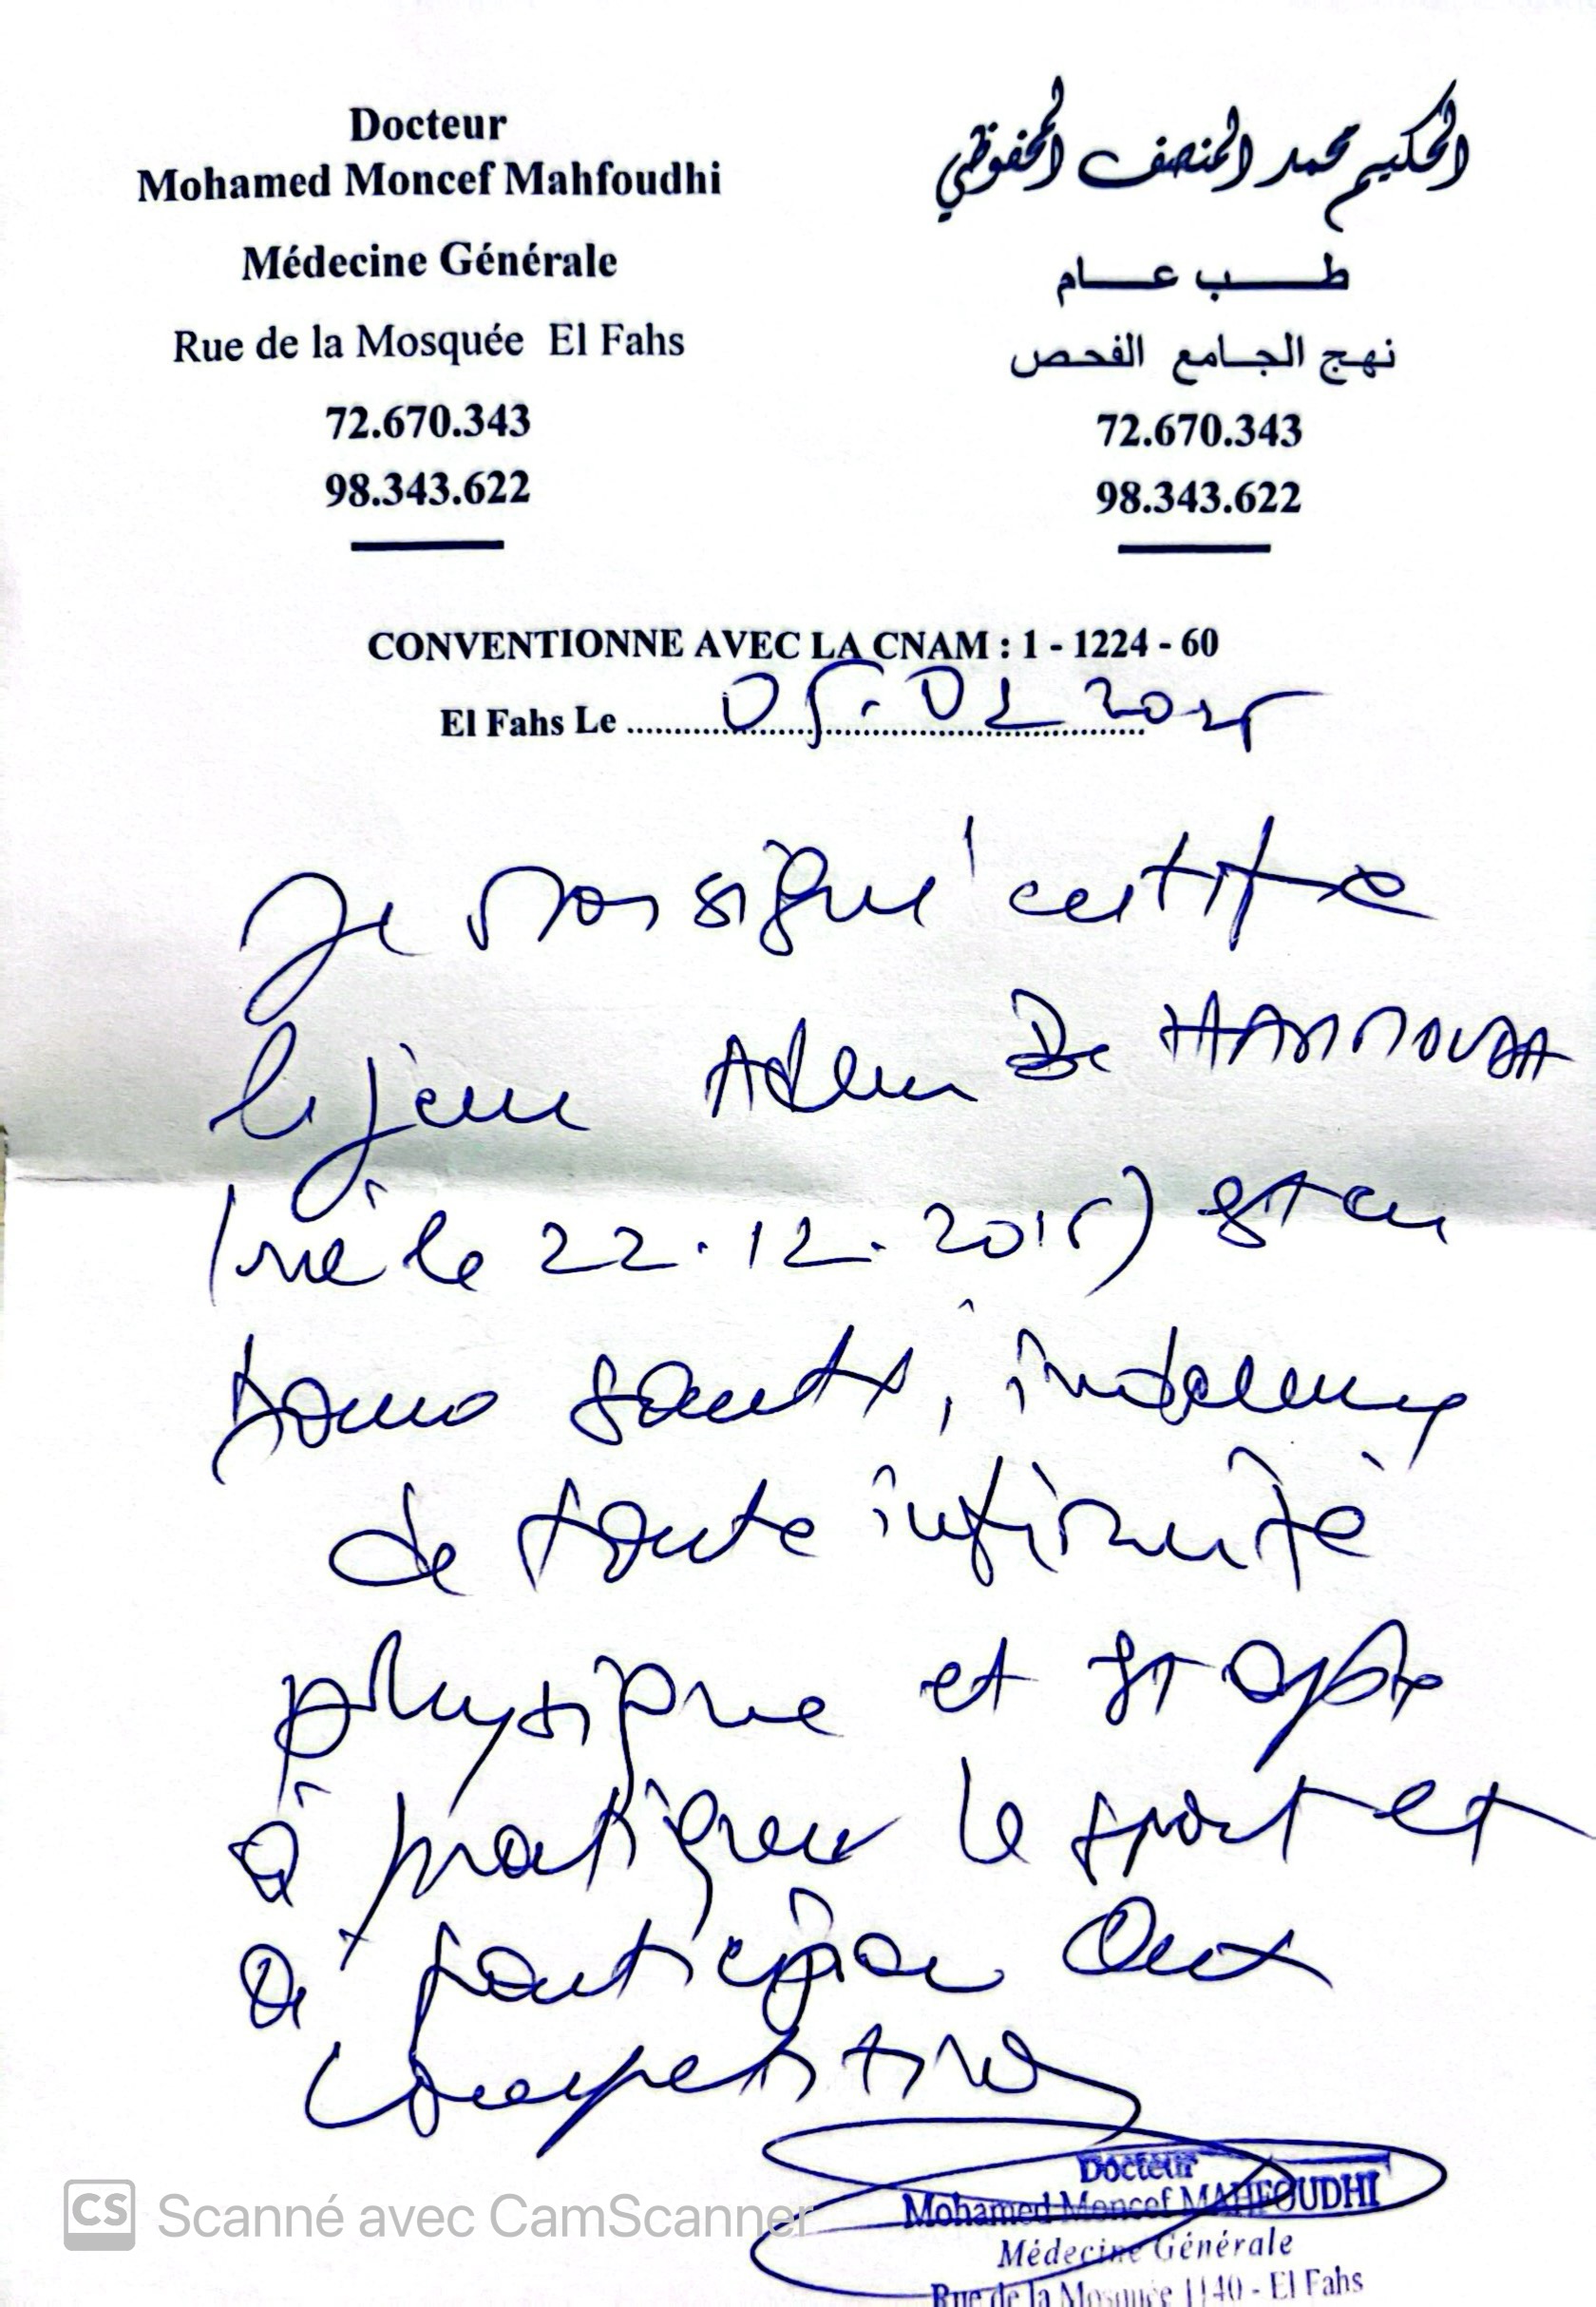 Docteur
Mohamed Moncef Mahfoudhi
Médecine Générale
Rue de la Mosquée El Fahs
72.670.343
98.343.622
الحكيم محمد المنصف المحفوظي
طب عام
نهج الجامع الفحص
72.670.343
98.343.622
CONVENTIONNE AVEC LA CNAM : 1 - 1224 - 60
El Fahs Le 05.02 2025
Je soussigné certifie
le jeune Adem Be HAMMOUDA
(né le 22.12.2015) est en
bonne santé, indemne
de toute infirmité
physique et est apte
à pratiquer le sport et
à participer aux
compétitions
Docteur
Mohamed Moncef MAHFOUDHI
Médecine Générale
Rue de la Mosquée 1140 - El Fahs
CS Scanné avec CamScanner